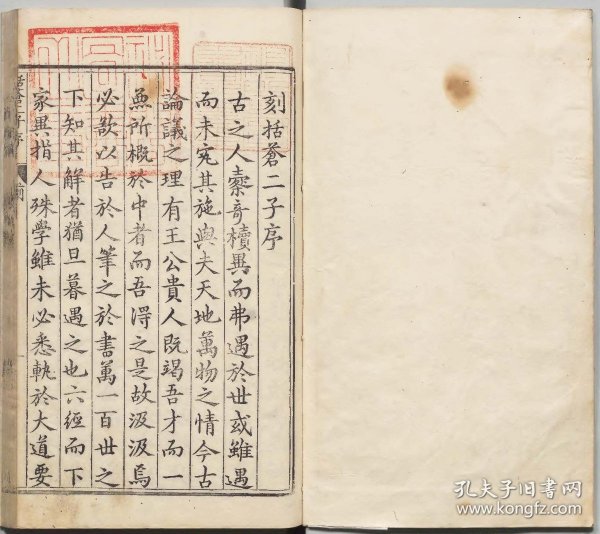 刻括蒼二子序
古之人橐奇櫝異而弗遇於世或雖遇
而未究其施與夫天地萬物之情今古
論議之理有王公貴人既竭吾才而一
無所概於中者而吾得之是故汲汲焉
必欲以告於人筆之於書萬一百世之
下知其解者猶旦暮遇之也六經而下
家異指人殊學雖未必悉軌於大道要
序
前
孔夫子旧书网
www.kongfz.com